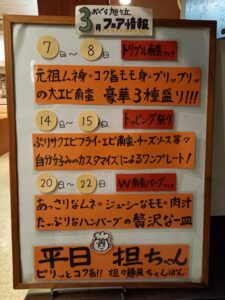 おぐら旭丘
3月フェア情報
7日〜8日 トリプル南蛮フェア
元祖ムネ身・コク旨モモ身・プリップリッ
の大エビ南蛮 豪華3種盛り!!!
14日〜15日 トッピング祭り
ぷりサクエビフライ・エビ南蛮・チーズソース等々
自分好みのカスタマイズによるワンプレート!
20日〜22日 W南蛮バーグフェア
あっさりなムネ○ジューシーなモモ○肉汁
たっぷりなハンバーグの贅沢な一皿
平日 担ちゃん
ピリッとコク旨!! 担々麺風ちゃんぽん